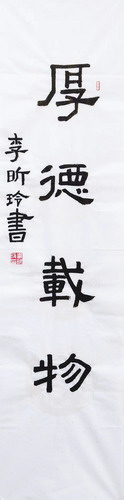 厚德載物
李昕玲書